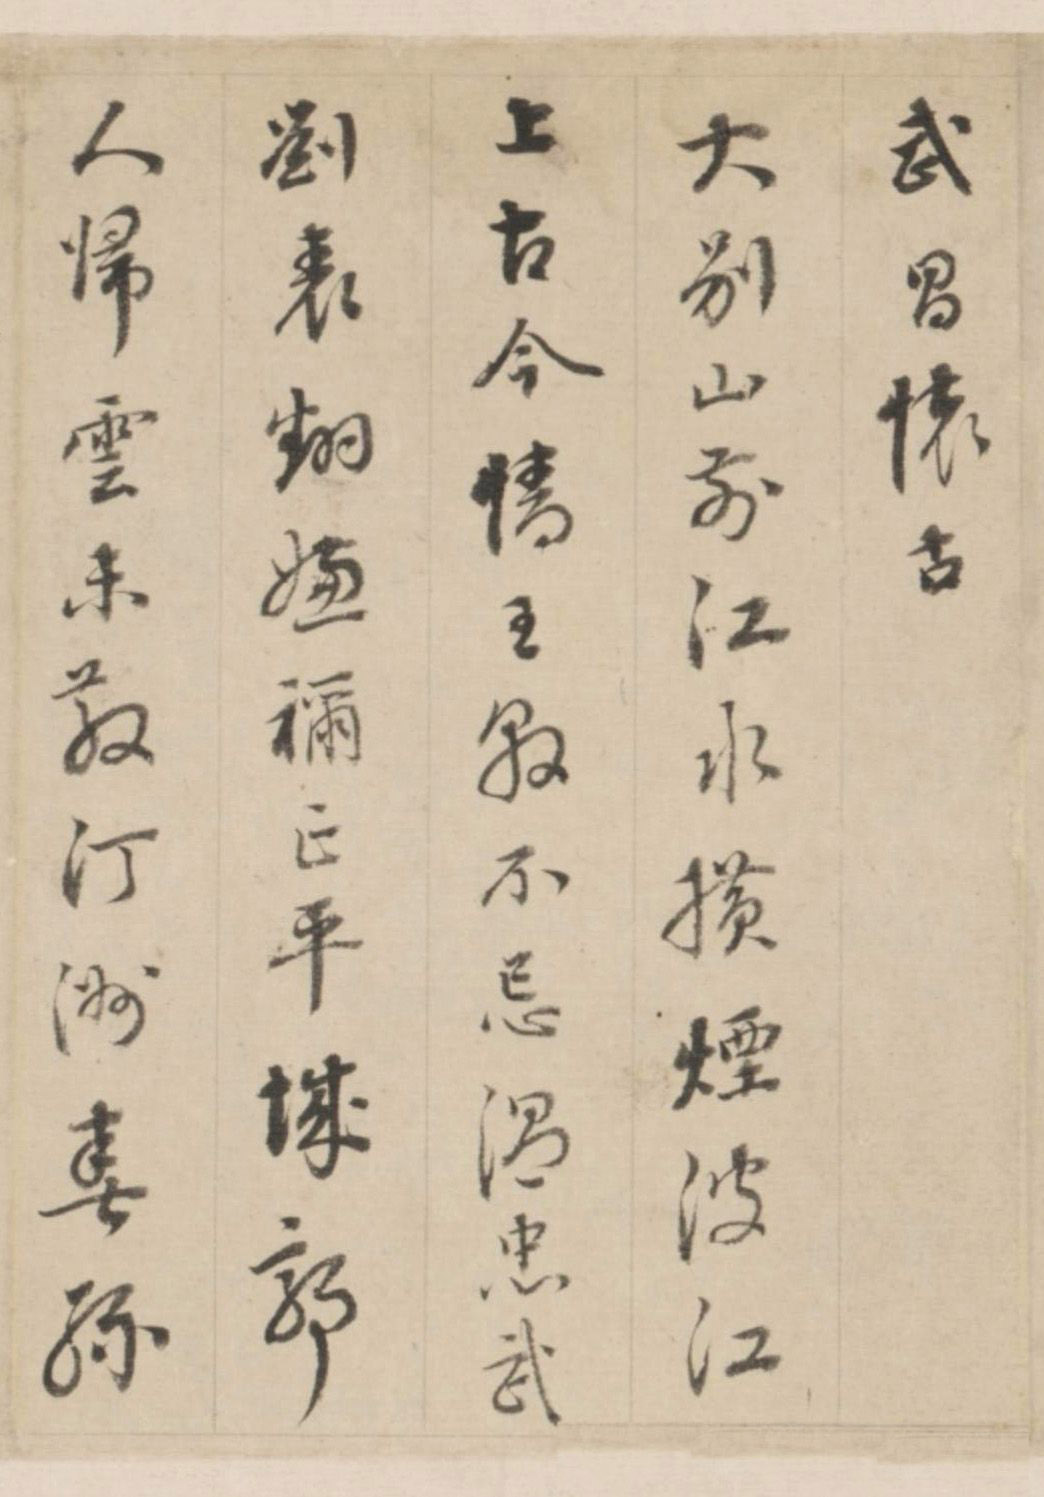 武昌懷古
大別山前江水横煙波江
上古今情王敦不忌溫忠武
劉表翻嫌禰正平城郭
人帰雲未散汀洲春緑